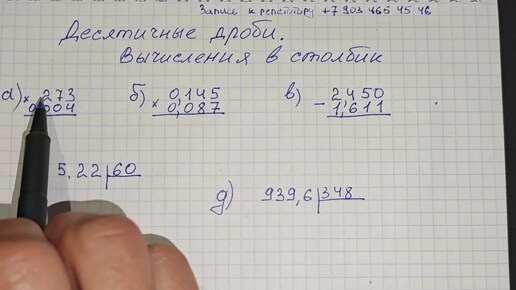 Запись к репетитору +7 903 465 45 46
Десятичные дроби.
Вычисления в столбик
а) × 273 б) × 0,145 в) − 2,450
0,004 0,087 1,611
5,22 60
д) 939,6 348